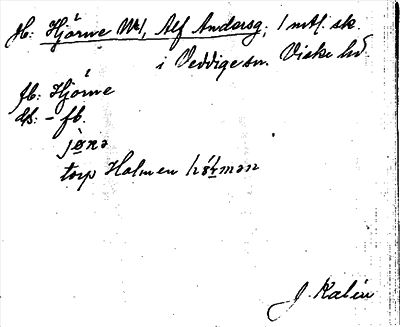 Jb: Hjörne No 1, Alf Andersg. 1 mtl. sk.
i Veddige sn. Viske hd.
fb: Hjörne
ds: - fb.
jø̀nə
torp Holmen hɔ́lmən
J. Kalén